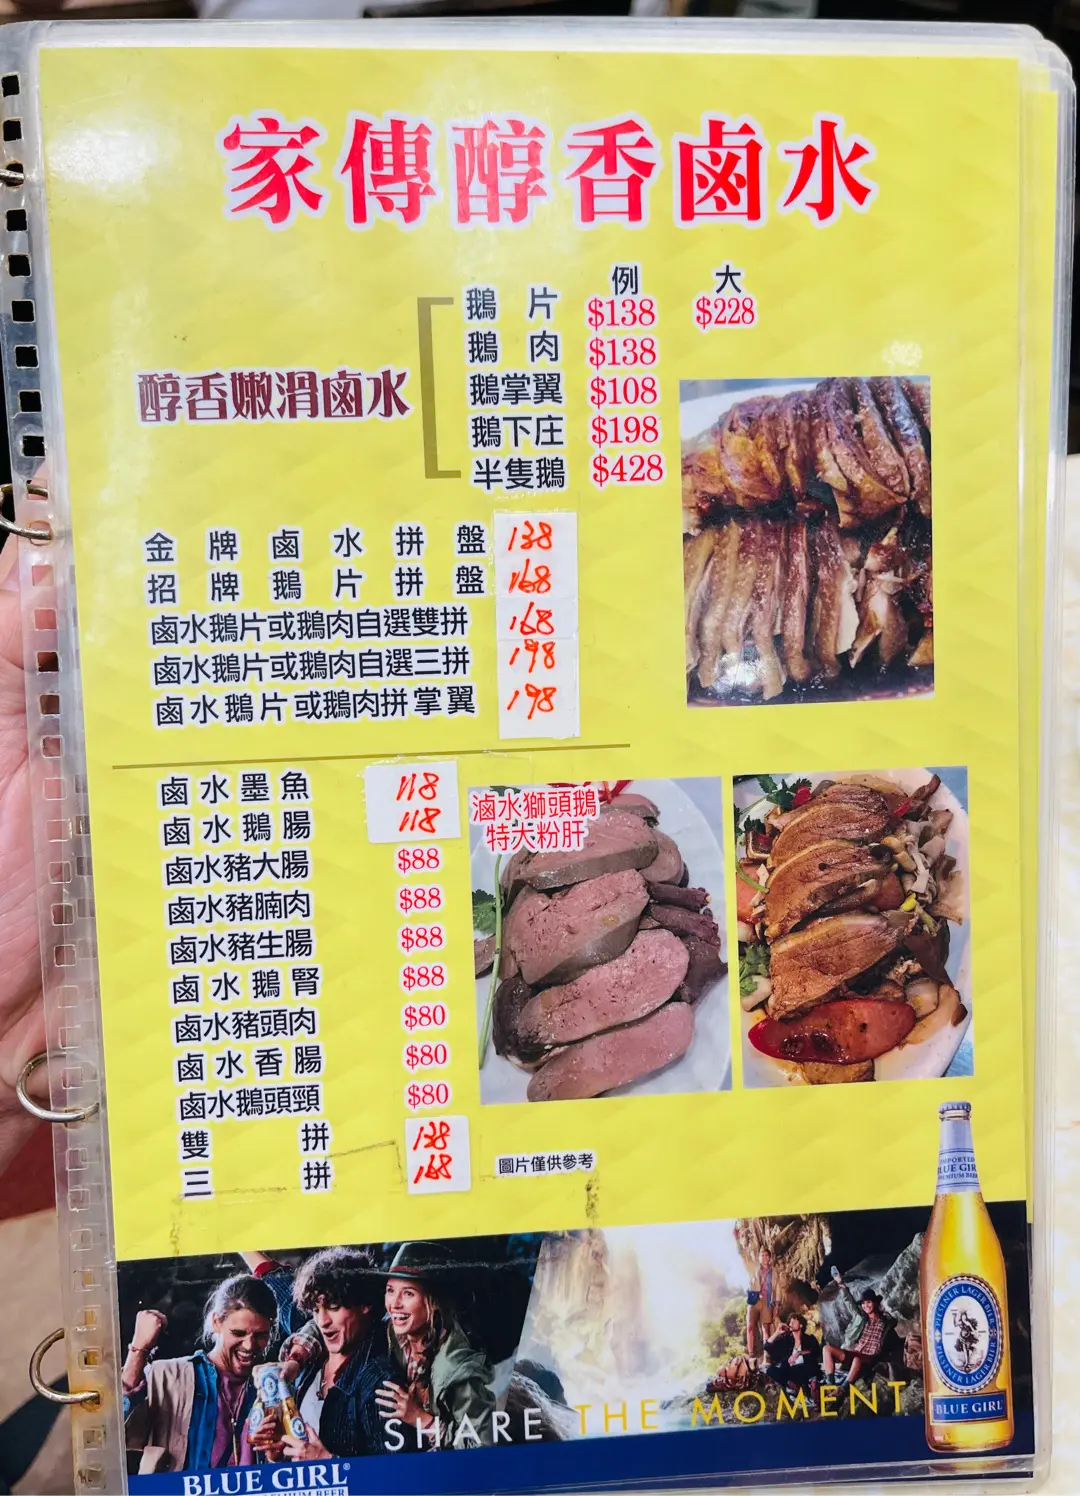 家傳醇香鹵水
例 大
鵝片 $138 $228
鵝肉 $138
醇香嫩滑鹵水
鵝掌翼 $108
鵝下庄 $198
半隻鵝 $428
金牌鹵水拼盤 138
招牌鵝片拼盤 168
鹵水鵝片或鵝肉自選雙拼 168
鹵水鵝片或鵝肉自選三拼 198
鹵水鵝片或鵝肉拼掌翼 198
鹵水墨魚 118
鹵水鵝腸 118
鹵水豬大腸 $88
鹵水豬腩肉 $88
鹵水豬生腸 $88
鹵水鵝腎 $88
鹵水豬頭肉 $80
鹵水香腸 $80
鹵水鵝頭頸 $80
雙拼 138
三拼 168
滷水獅頭鵝
特大粉肝
圖片僅供參考
IMPORTED
BLUE GIRL
PREMIUM BEER
PILSENER LAGER BIER
PILSENER LAGER BIER
BLUE GIRL
SHARE THE MOMENT
BLUE GIRL®
PREMIUM BEER